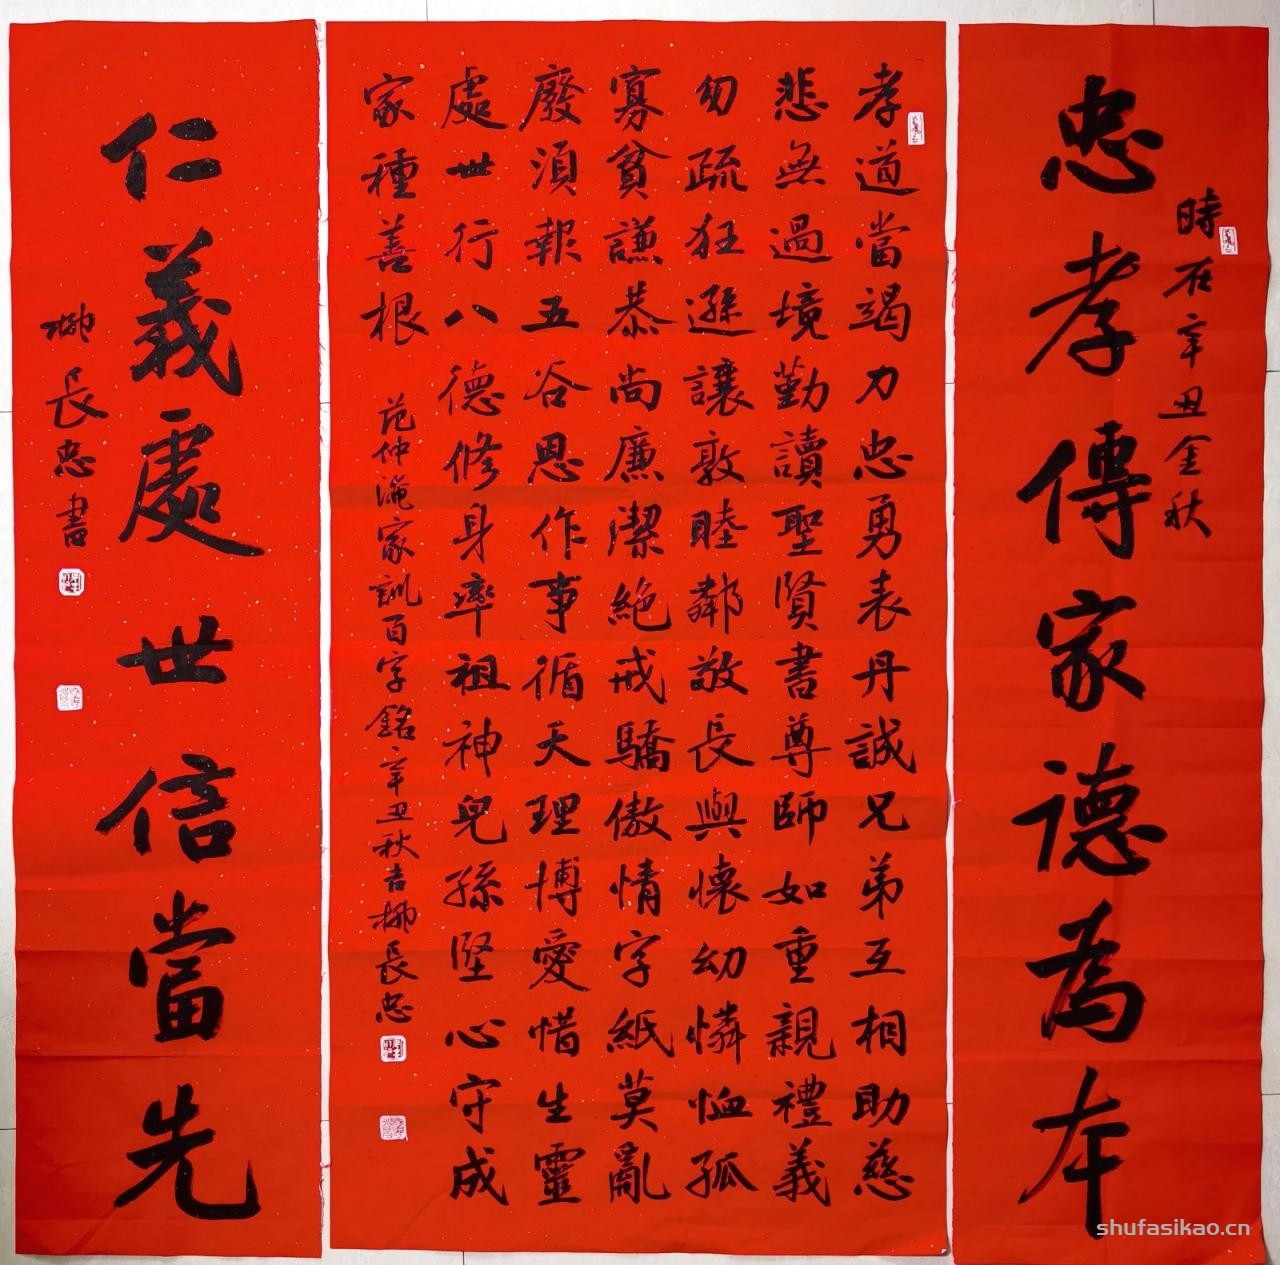 時在辛丑金秋
忠孝傳家德為本
孝道當竭力忠勇表丹誠兄弟互相助慈
悲無過境勤讀聖賢書尊師如重親禮義
勿疏狂遜讓敦睦鄰敬長與懷幼憐恤孤
寡貧謙恭尚廉潔絕戒驕傲情字紙莫亂
廢須報五谷恩作事循天理博愛惜生靈
處世行八德修身率祖神兒孫堅心守成
家種善根 范仲淹家訓百字銘辛丑秋吉柳長忠
仁義處世信當先
柳長忠書
shufasikao.cn